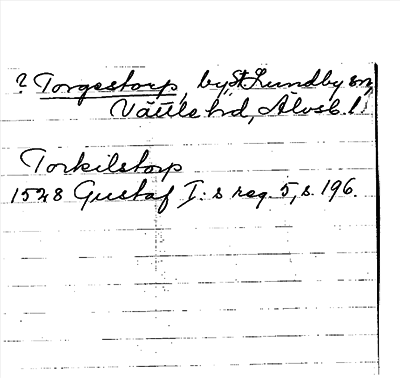 ? Torgestorp, by, St. Lundby sn,
Vättle hd, Älvsb. l:
Torkilstorp
1528 Gustaf I:s reg. 5, s. 196.